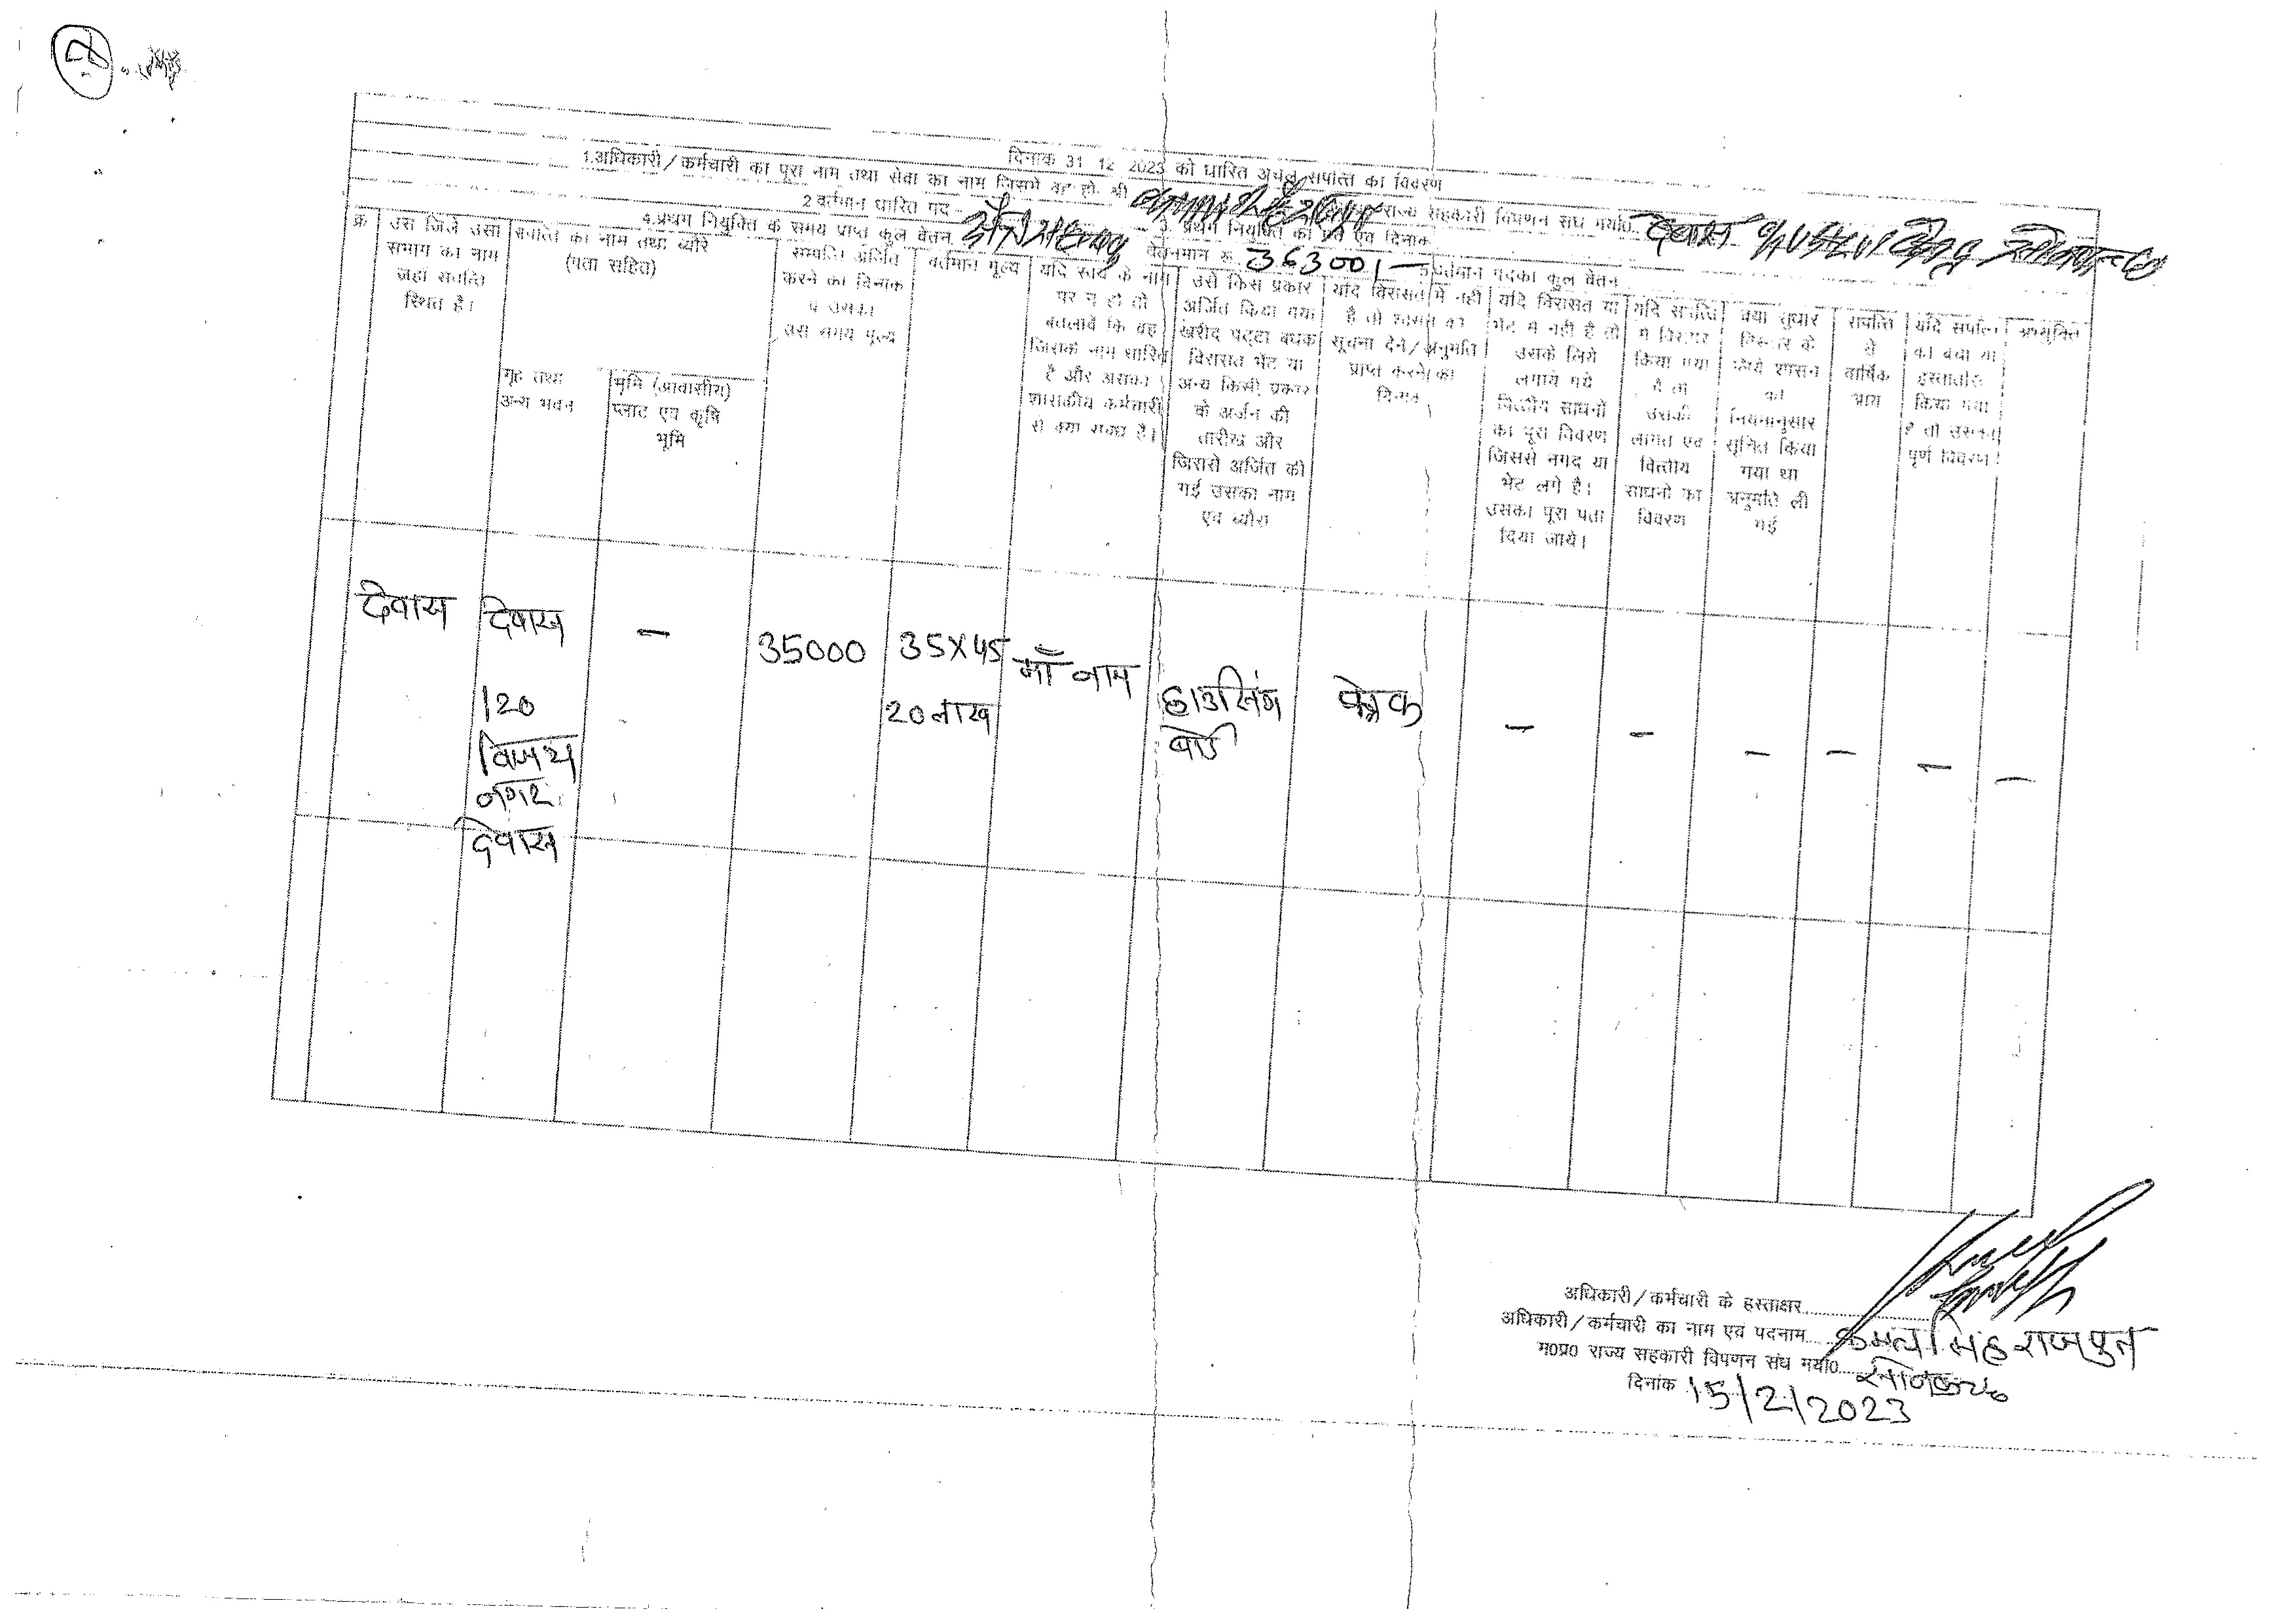 दिनाक 31 12 2023 को धारित अचल सपत्ति का विवरण
1.अधिकारी/कर्मचारी का पूरा नाम तथा सेवा का नाम जिसमे वह हो- श्री
राज्य सहकारी विपणन संघ मर्या० देवास
2 वर्तमान धारित पद
3. प्रथम नियुक्ति का पद एवं दिनाक
4.प्रथम नियुक्ति के समय प्राप्त कुल वेतन
वेतनमान रू. 36300/- 5 वर्तमान पदका कुल वेतन
क्र
उस जिले उसा
सभाग का नाम
जहा सपत्ति
स्थित है।
सपत्ति का नाम तथा ब्यौरे
(पता सहित)
गृह तथा
अन्य भवन
भूमि (आवासीय)
प्लाट एव कृषि
भूमि
सम्पत्ति अर्जित
करने का दिनाक
व उसका
उस समय मूल्य
वर्तमान मूल्य
यदि स्वय के नाम
पर न हो तो
बतलावें कि वह
जिसके नाम धारित
है और उसका
शासकीय कर्मचारी
से क्या सबध है।
उसे किस प्रकार
अर्जित किया गया
खरीद पट्टा बधक
विरासत भेंट या
अन्य किसी प्रकार
के अर्जन की
तारीख और
जिससे अर्जित की
गई उसका नाम
एव ब्यौरा
यदि विरासत में नही
है तो शासन को
सूचना देने/अनुमति
प्राप्त करने का
दिनाक
यदि विरासत या
भेंट मे नही है तो
उसके लिये
लगाये गये
वित्तीय साधनों
का पूरा विवरण
जिससे नगद या
भेंट लगे है।
उसका पूरा पता
दिया जाये।
यदि सपत्ति
मे विस्तार
किया गया
है तो
उसकी
लागत एव
वित्तीय
साधनो का
विवरण
क्या सुधार
विस्तार के
लिये शासन
को
नियमानुसार
सूचित किया
गया था
अनुमति ली
गई
सपत्ति
से
वार्षिक
आय
यदि सपत्ति
को बेचा या
हस्तातरित
किया गया
है तो उसका
पूर्ण विवरण।
अभ्युक्ति
देवास
देवास
120
विजय
नगर
देवास
–
35000
35X45
20 लाख
माँ नाम
हाउसिंग
बोर्ड
–
–
–
–
–
–
अधिकारी/कर्मचारी के हस्ताक्षर
अधिकारी/कर्मचारी का नाम एव पदनाम कमल सिंह राजपुत
म०प्र० राज्य सहकारी विपणन संघ मर्या०
दिनांक 15/2/2023